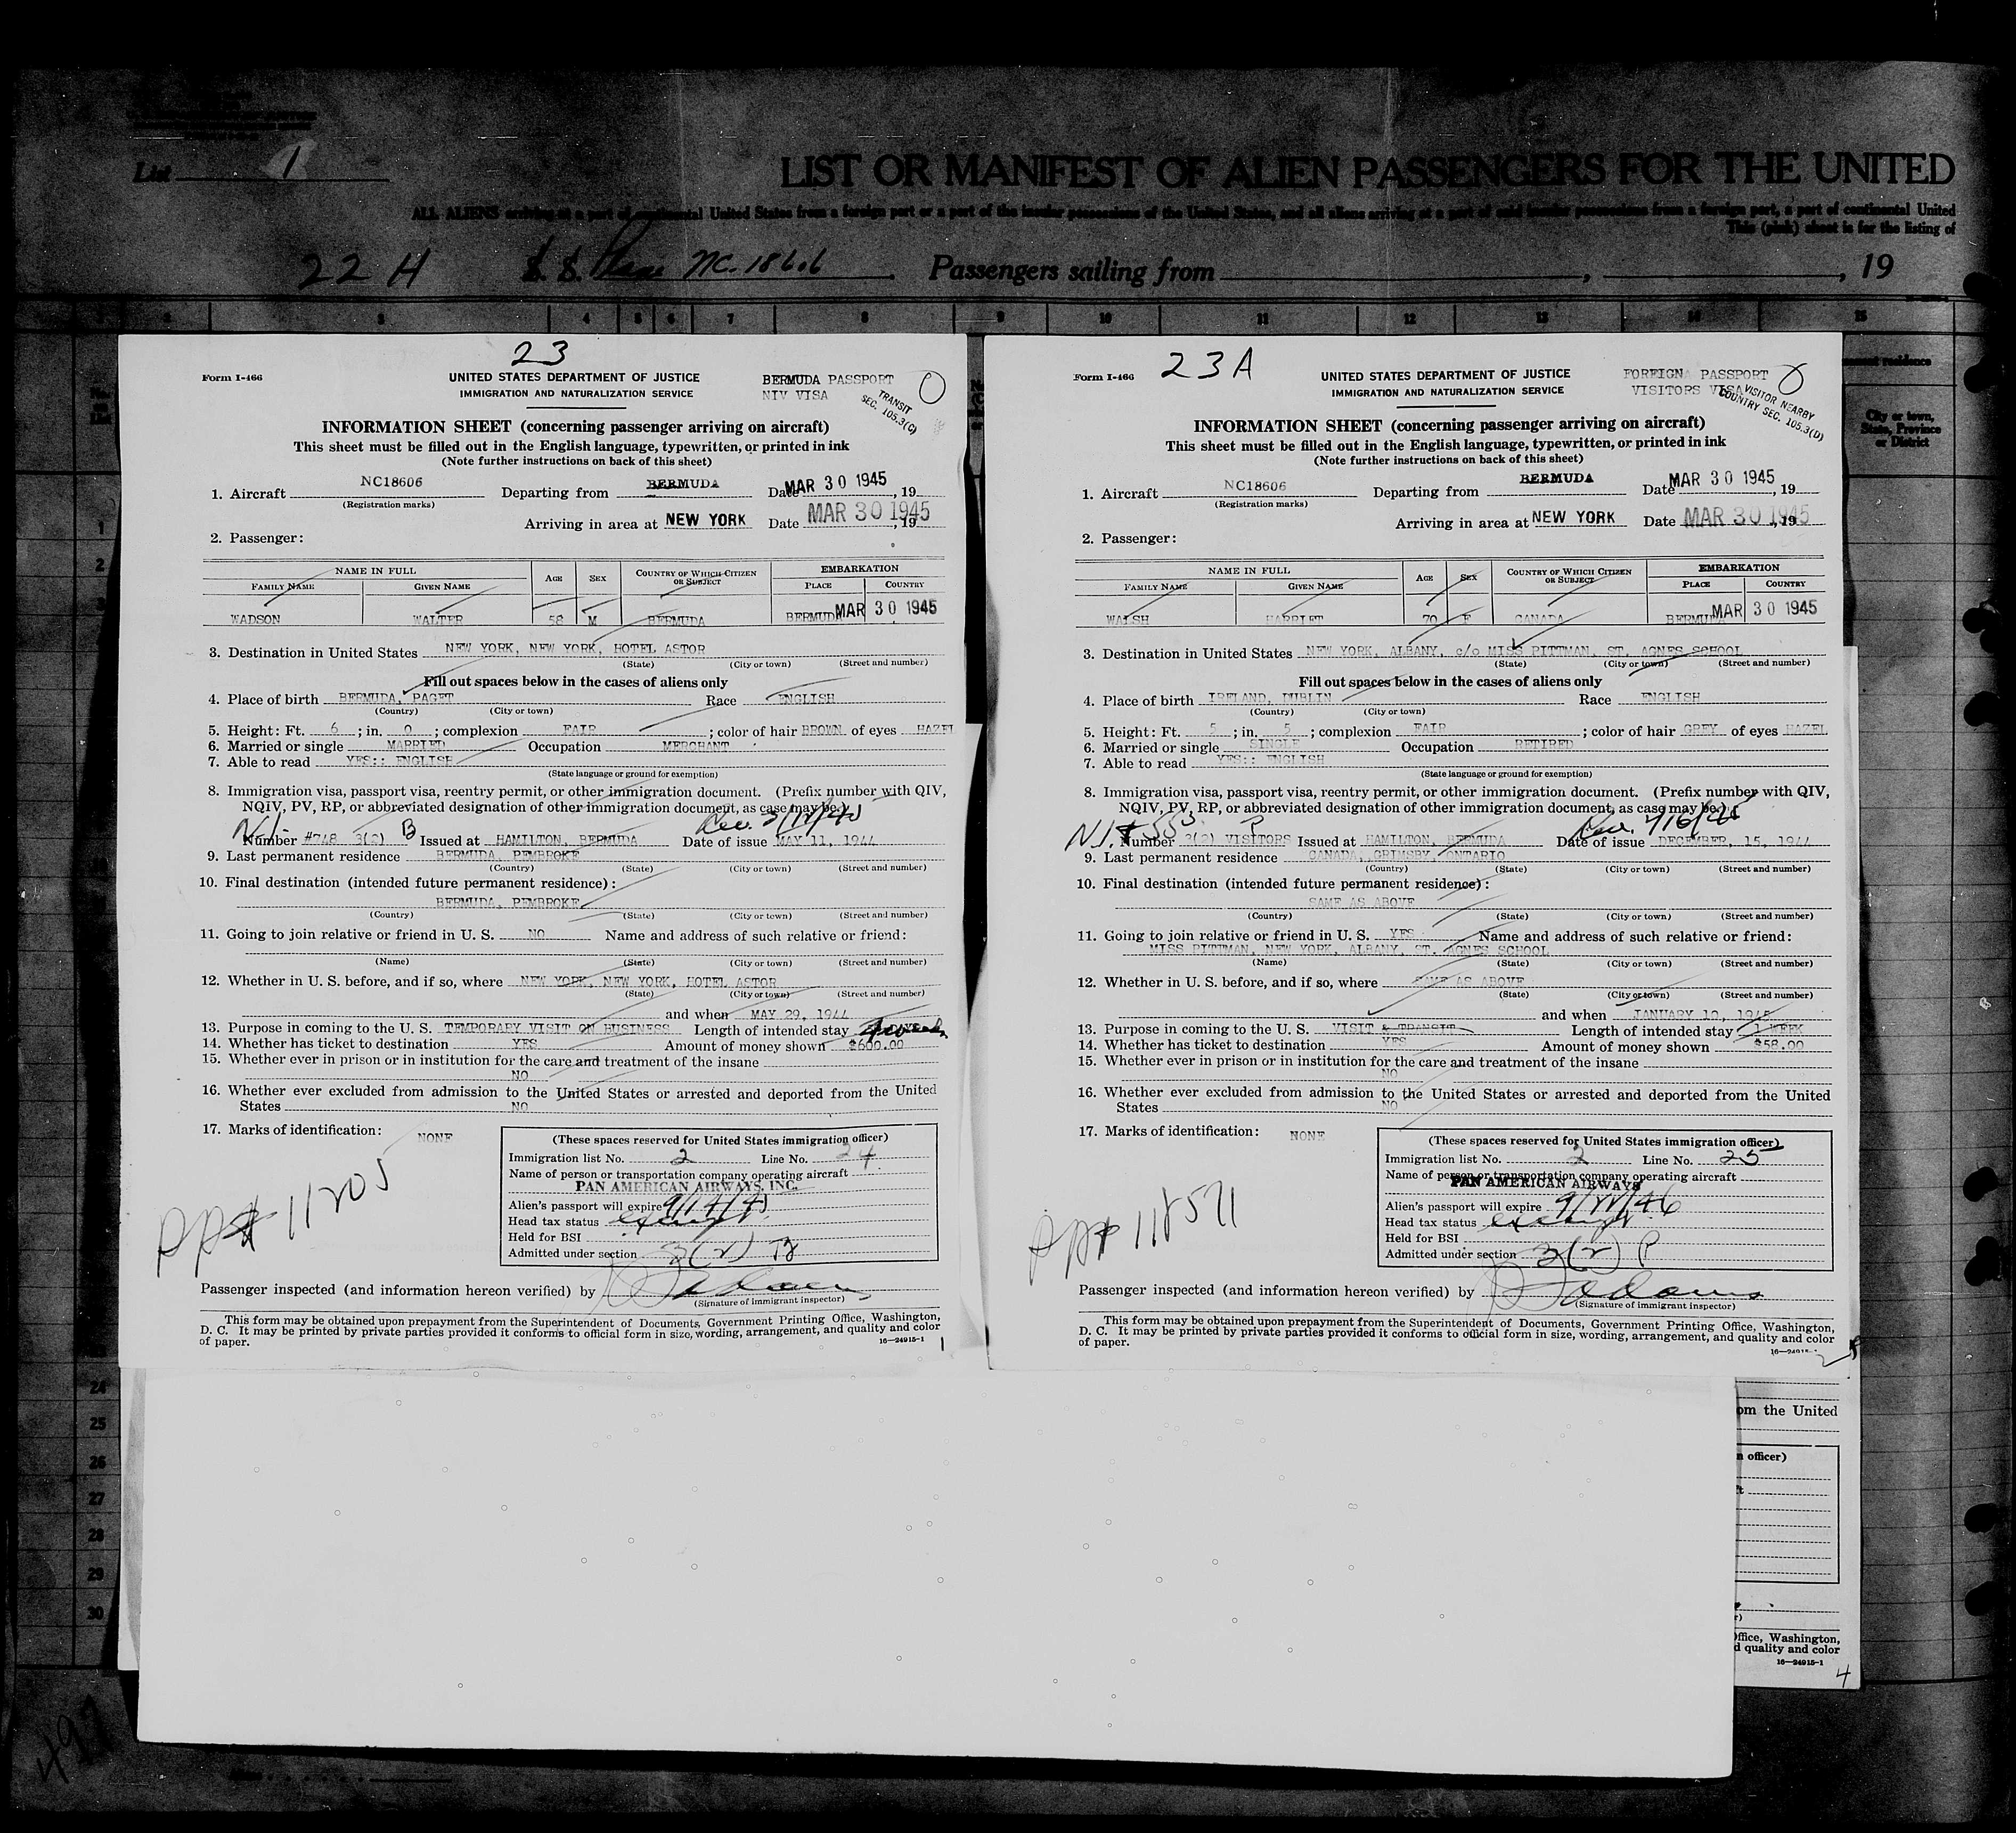 List 1
LIST OR MANIFEST OF ALIEN PASSENGERS FOR THE UNITED
ALL ALIENS arriving at a port of continental United States from a foreign port or a port of the insular possessions of the United States, and all aliens arriving at a port of said insular possessions from a foreign port, a port of continental United
This (pink) sheet is for the listing of
22 H S. S. Plane NC. 18606 Passengers sailing from , , 19
3 4 5 6 7 8 9 10 11 12 13 14 15
23
Form I-466
UNITED STATES DEPARTMENT OF JUSTICE
IMMIGRATION AND NATURALIZATION SERVICE
BERMUDA PASSPORT
NIV VISA
TRANSIT
SEC. 105.3(C)
INFORMATION SHEET (concerning passenger arriving on aircraft)
This sheet must be filled out in the English language, typewritten, or printed in ink
(Note further instructions on back of this sheet)
1. Aircraft NC18606 Departing from BERMUDA Date MAR 30 1945, 19
(Registration marks)
Arriving in area at NEW YORK Date MAR 30 1945, 19
2. Passenger:
NAME IN FULL AGE SEX COUNTRY OF WHICH CITIZEN OR SUBJECT EMBARKATION
FAMILY NAME GIVEN NAME PLACE COUNTRY
WADSON WALTER 58 M BERMUDA BERMUDA MAR 30 1945
3. Destination in United States NEW YORK, NEW YORK, HOTEL ASTOR
(State) (City or town) (Street and number)
Fill out spaces below in the cases of aliens only
4. Place of birth BERMUDA, PAGET Race ENGLISH
(Country) (City or town)
5. Height: Ft. 6 ; in. 0 ; complexion FAIR ; color of hair BROWN of eyes HAZEL
6. Married or single MARRIED Occupation MERCHANT
7. Able to read YES:: ENGLISH
(State language or ground for exemption)
8. Immigration visa, passport visa, reentry permit, or other immigration document. (Prefix number with QIV,
NQIV, PV, RP, or abbreviated designation of other immigration document, as case may be.)
Number #748 3(2) B Issued at HAMILTON, BERMUDA Date of issue MAY 11, 1944
9. Last permanent residence BERMUDA, PEMBROKE
(Country) (State) (City or town) (Street and number)
10. Final destination (intended future permanent residence):
BERMUDA, PEMBROKE
(Country) (State) (City or town) (Street and number)
11. Going to join relative or friend in U. S. NO Name and address of such relative or friend:
(Name) (State) (City or town) (Street and number)
12. Whether in U. S. before, and if so, where NEW YORK, NEW YORK, HOTEL ASTOR
(State) (City or town) (Street and number)
and when MAY 29, 1944
13. Purpose in coming to the U. S. TEMPORARY VISIT ON BUSINESS Length of intended stay
14. Whether has ticket to destination YES Amount of money shown $600.00
15. Whether ever in prison or in institution for the care and treatment of the insane
NO
16. Whether ever excluded from admission to the United States or arrested and deported from the United
States NO
17. Marks of identification: NONE
(These spaces reserved for United States immigration officer)
Immigration list No. 2 Line No. 24
Name of person or transportation company operating aircraft
PAN AMERICAN AIRWAYS, INC.
Alien's passport will expire 9/14/45
Head tax status exempt
Held for BSI
Admitted under section 3(2) TB
PP# 11205
Passenger inspected (and information hereon verified) by Adams
(Signature of immigrant inspector)
This form may be obtained upon prepayment from the Superintendent of Documents, Government Printing Office, Washington,
D. C. It may be printed by private parties provided it conforms to official form in size, wording, arrangement, and quality and color
of paper.
16—24915-1
1
23A
Form I-466
UNITED STATES DEPARTMENT OF JUSTICE
IMMIGRATION AND NATURALIZATION SERVICE
FOREIGN PASSPORT
VISITORS VISA
VISITOR NEARBY
COUNTRY SEC. 105.3(D)
INFORMATION SHEET (concerning passenger arriving on aircraft)
This sheet must be filled out in the English language, typewritten, or printed in ink
(Note further instructions on back of this sheet)
1. Aircraft NC18606 Departing from BERMUDA Date MAR 30 1945, 19
(Registration marks)
Arriving in area at NEW YORK Date MAR 30 1945, 19
2. Passenger:
NAME IN FULL AGE SEX COUNTRY OF WHICH CITIZEN OR SUBJECT EMBARKATION
FAMILY NAME GIVEN NAME PLACE COUNTRY
WALSH HARRIET 70 F CANADA BERMUDA MAR 30 1945
3. Destination in United States NEW YORK, ALBANY, c/o MISS PITTMAN, ST. AGNES SCHOOL
(State) (City or town) (Street and number)
Fill out spaces below in the cases of aliens only
4. Place of birth IRELAND, DUBLIN Race ENGLISH
(Country) (City or town)
5. Height: Ft. 5 ; in. 5 ; complexion FAIR ; color of hair GREY of eyes HAZEL
6. Married or single SINGLE Occupation RETIRED
7. Able to read YES:: ENGLISH
(State language or ground for exemption)
8. Immigration visa, passport visa, reentry permit, or other immigration document. (Prefix number with QIV,
NQIV, PV, RP, or abbreviated designation of other immigration document, as case may be.)
N.I. # 553 Number 3(2) VISITORS Issued at HAMILTON, BERMUDA Date of issue DECEMBER, 15, 1944
9. Last permanent residence CANADA, GRIMSBY, ONTARIO
(Country) (State) (City or town) (Street and number)
10. Final destination (intended future permanent residence):
SAME AS ABOVE
(Country) (State) (City or town) (Street and number)
11. Going to join relative or friend in U. S. YES Name and address of such relative or friend:
MISS PITTMAN, NEW YORK, ALBANY, ST. AGNES SCHOOL
(Name) (State) (City or town) (Street and number)
12. Whether in U. S. before, and if so, where SAME AS ABOVE
(State) (City or town) (Street and number)
and when JANUARY 10, 1945
13. Purpose in coming to the U. S. VISIT & TRANSIT Length of intended stay 1 WEEK
14. Whether has ticket to destination YES Amount of money shown $58.00
15. Whether ever in prison or in institution for the care and treatment of the insane
NO
16. Whether ever excluded from admission to the United States or arrested and deported from the United
States NO
17. Marks of identification: NONE
(These spaces reserved for United States immigration officer)
Immigration list No. 2 Line No. 25
Name of person or transportation company operating aircraft
PAN AMERICAN AIRWAYS
Alien's passport will expire 9/11/46
Head tax status exempt
Held for BSI
Admitted under section 3(2) P
PP# 118571
Passenger inspected (and information hereon verified) by Adams
(Signature of immigrant inspector)
This form may be obtained upon prepayment from the Superintendent of Documents, Government Printing Office, Washington,
D. C. It may be printed by private parties provided it conforms to official form in size, wording, arrangement, and quality and color
of paper.
City or town,
State, Province
or District
1
2
24
25
26
27
28
29
30
om the United
n officer)
ffice, Washington,
d quality and color
16—24915-1
4